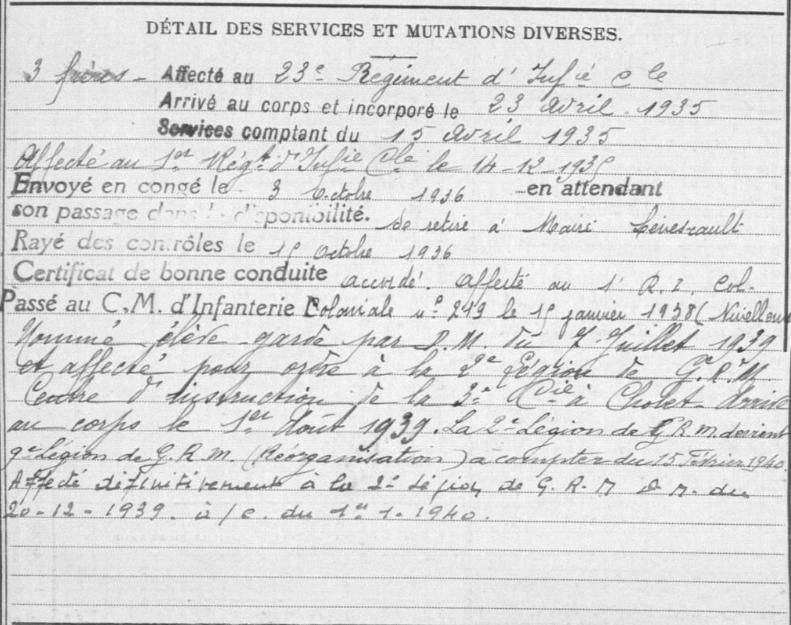 DÉTAIL DES SERVICES ET MUTATIONS DIVERSES.
3 frères - Affecté au 23e Régiment d'Infie Cle
Arrivé au corps et incorporé le 23 avril 1935
Services comptant du 15 avril 1935
Affecté au 1er Régt d'Infie Cle le 14-12-1935
Envoyé en congé le 3 octobre 1936 en attendant
son passage dans la disponibilité. se retire à
Rayé des contrôles le 15 octobre 1936
Certificat de bonne conduite accordé. affecté au 1er R.I. Col.
Passé au C.M. d'Infanterie Coloniale n° 213 le 15 janvier 1938 (
Nommé élève garde par D.M. du 7 Juillet 1939
et affecté pour ordre à la 2e Légion de G.R.M
Centre d'instruction de la 3e Cie à Cholet. Arrivé
au corps le 1er Août 1939. La 2e Légion de G.R.M. devient
9e Légion de G.R.M. (Réorganisation) à compter du 15 Février 1940.
Affecté définitivement à la 2e Légion de G.R.M D.M. du
20-12-1939. à /c. du 1er 1-1940.